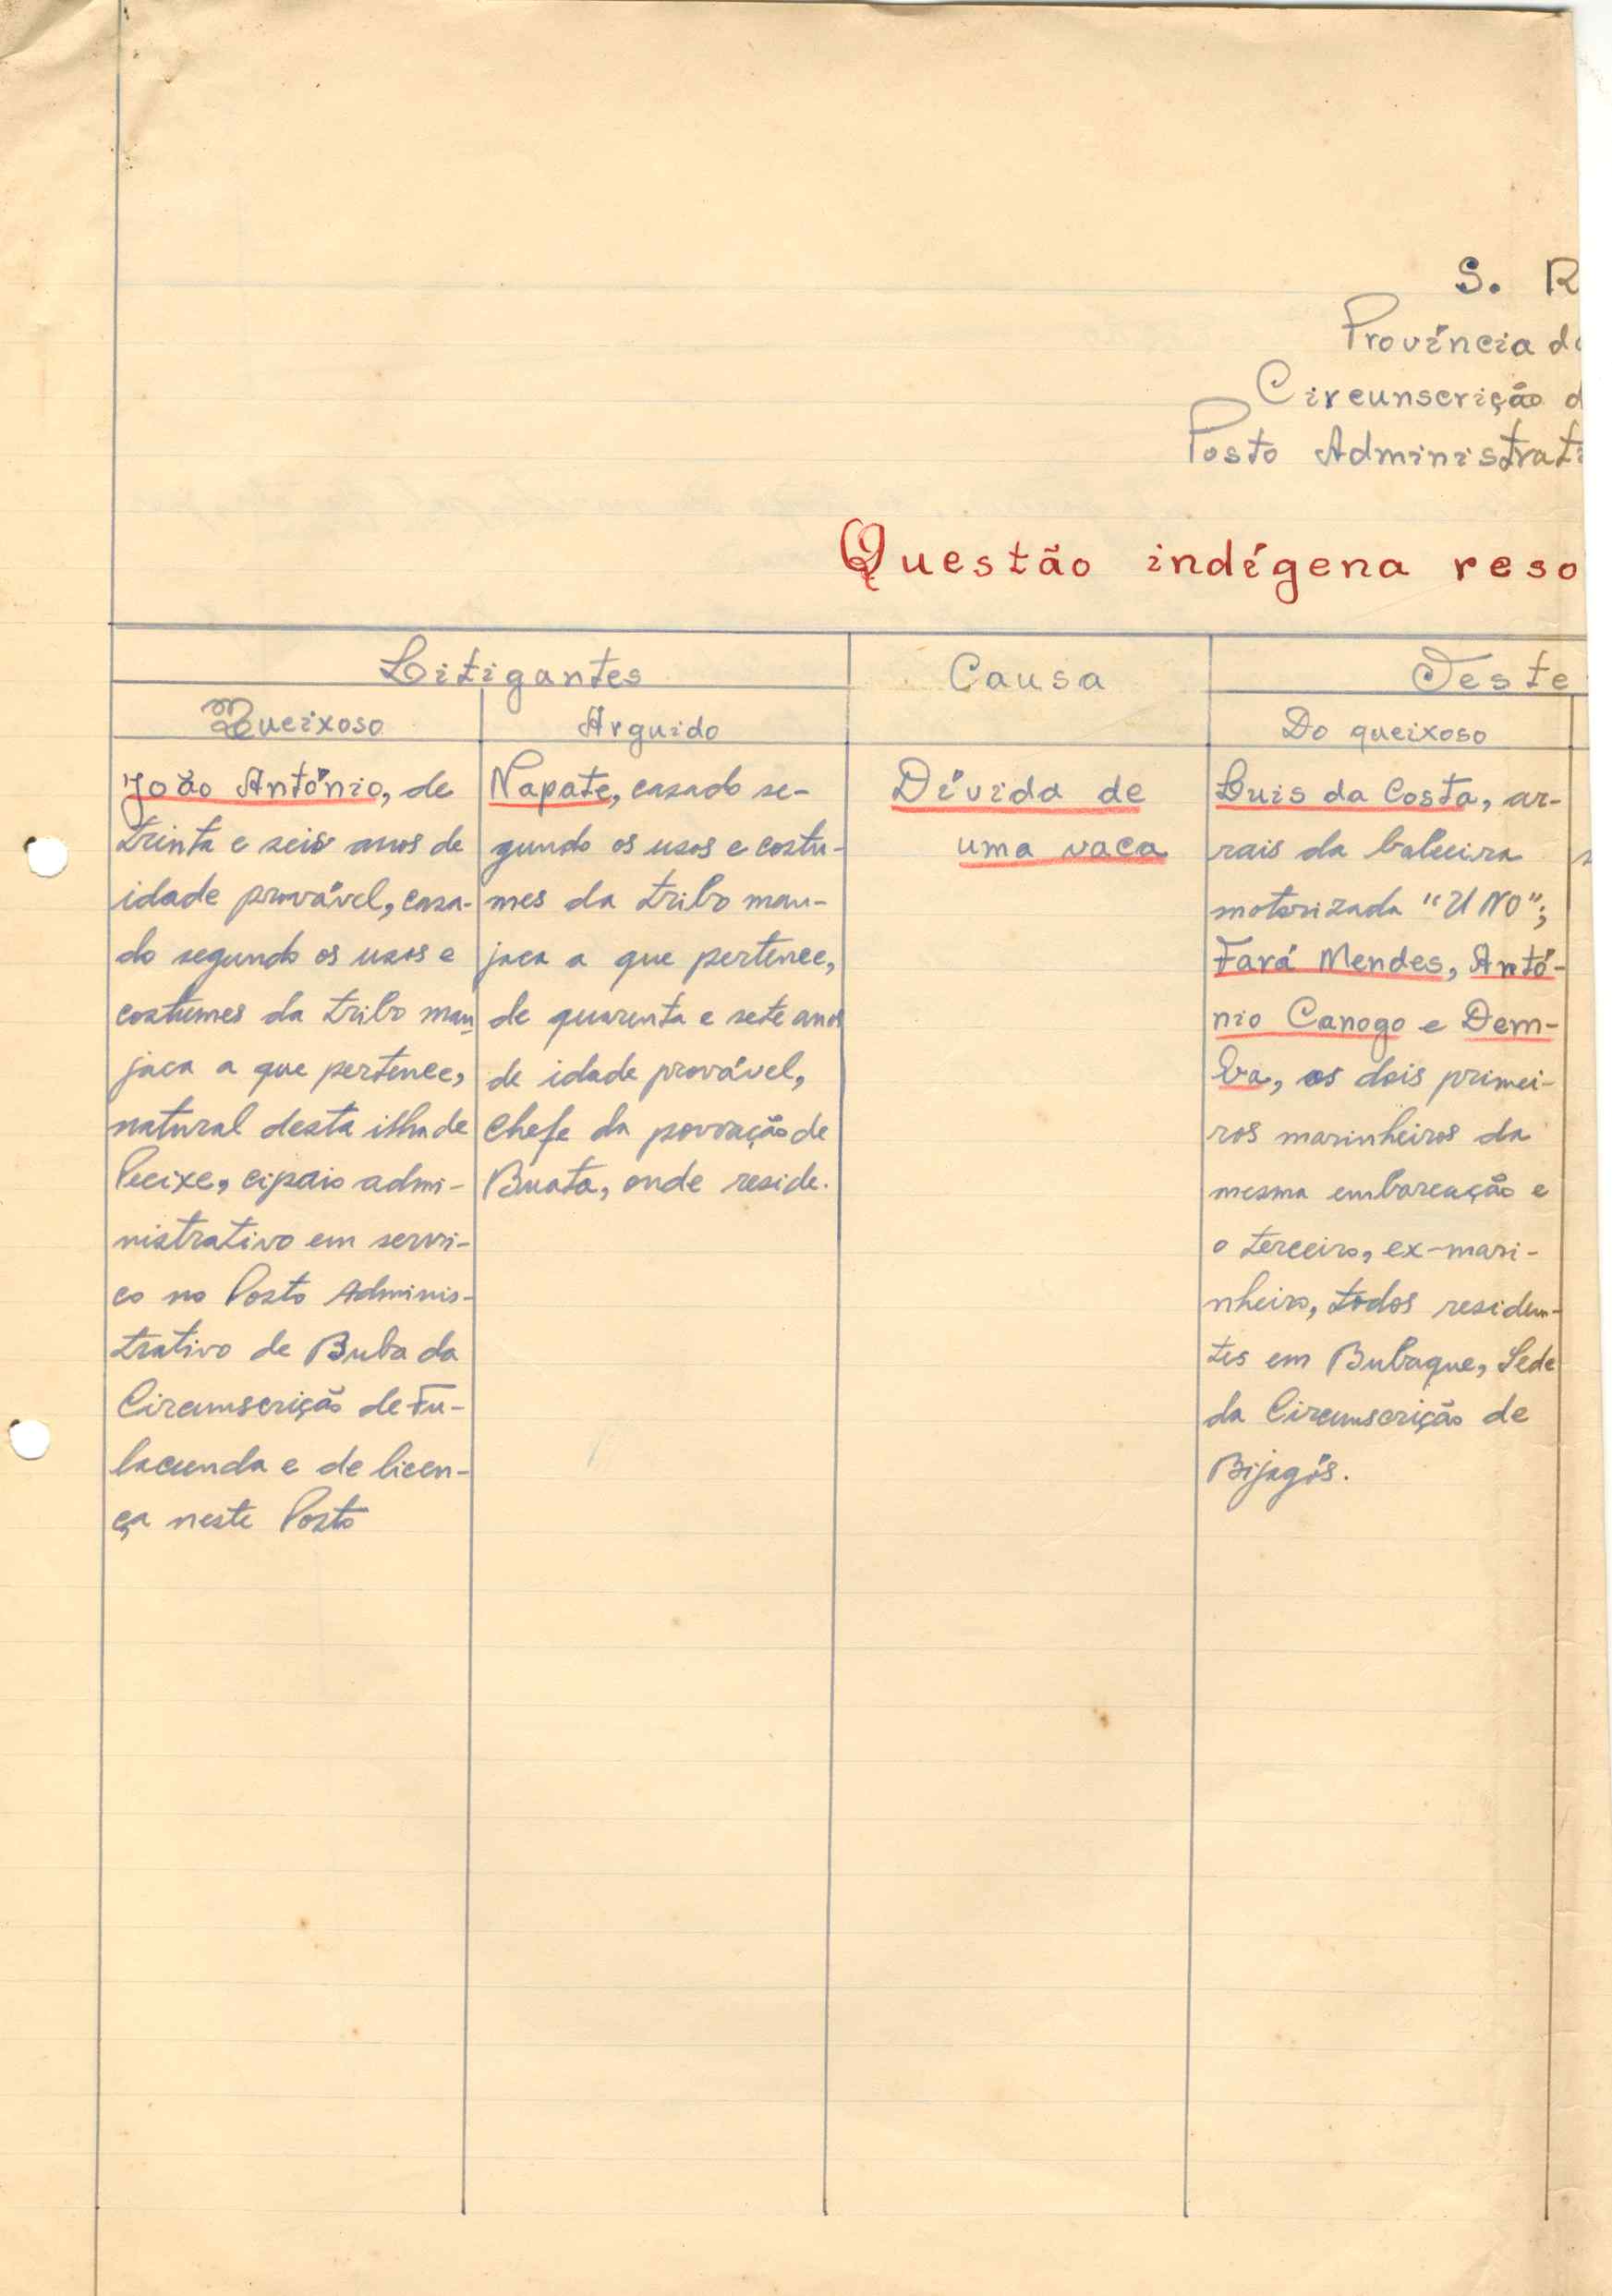 S. R
Província d
Circunscrição d
Posto Administrati
Questão indígena reso
Litigantes
Causa
Teste
Queixoso
Arguido
Do queixoso
João António, de
trinta e seis anos de
idade provável, casa-
do segundo os usos e
costumes da tribo man
jaca a que pertence,
natural desta ilha de
Peeixe, cipaio admi-
nistrativo em servi-
ço no Posto Adminis-
trativo de Buba da
Circunscrição de Fu-
lacunda e de licen-
ça neste Posto
Napate, casado se-
gundo os usos e costu-
mes da tribo man-
jaca a que pertence,
de quarenta e sete anos
de idade provável,
chefe da povoação de
Buata, onde reside.
Dívida de
uma vaca
Luis da Costa, ar-
rais da baleeira
motorizada "UNO";
Fará Mendes, Antó-
nio Canogo e Dem-
ba, os dois primei-
ros marinheiros da
mesma embarcação e
o terceiro, ex-mari-
nheiro, todos residen-
tes em Bubaque, Sede
da Circunscrição de
Bijagós.